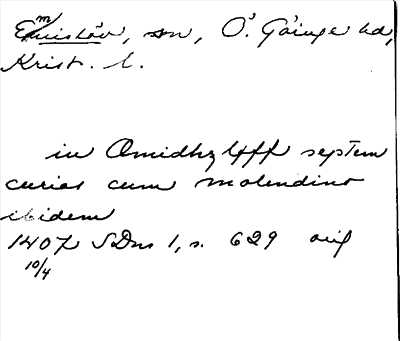 Emmislöv, sn, Ö. Göinge hd,
Krist. l.
in Omidhzlyff septem
curias cum molendino
ibidem
1407 SDns 1, s. 629 orig
10/4